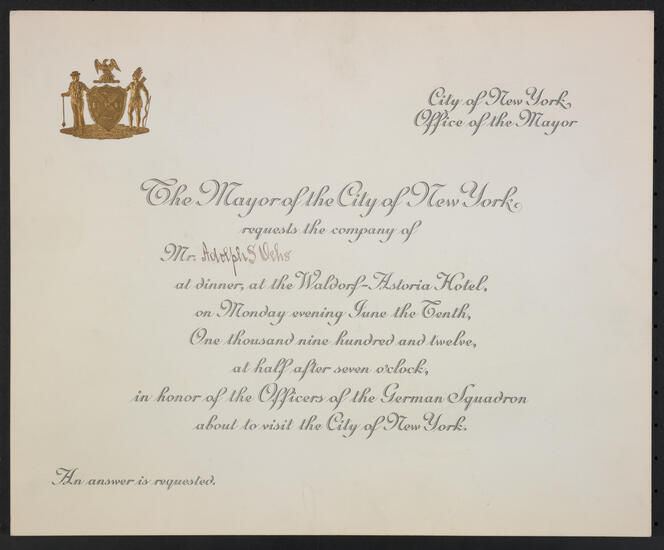 City of New York
Office of the Mayor
The Mayor of the City of New York
requests the company of
Mr. Adolph S Ochs
at dinner, at the Waldorf-Astoria Hotel,
on Monday evening June the Tenth,
One thousand nine hundred and twelve,
at half after seven o'clock,
in honor of the Officers of the German Squadron
about to visit the City of New York.
An answer is requested.